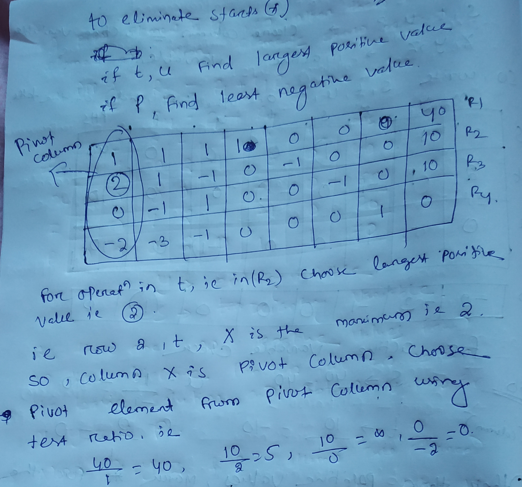 to eliminate stars (*)
if t, u Find largest positive value
if P, find least negative value.
Pivot column
1 1 1 1 0 0 0 40 R1
2 1 -1 0 -1 0 0 10 R2
0 -1 1 0 0 -1 0 10 R3
-2 -3 -1 0 0 0 1 0 R4.
For operatn in t, ie in (R2) choose largest positive
value ie 2.
ie row 2, t, X is the maximum ie 2.
So, column X is Pivot Column. Choose
Pivot element from Pivot Column using
test ratio. ie
40/1 = 40, 10/2 = 5, 10/0 = ∞, 0/-2 = 0.